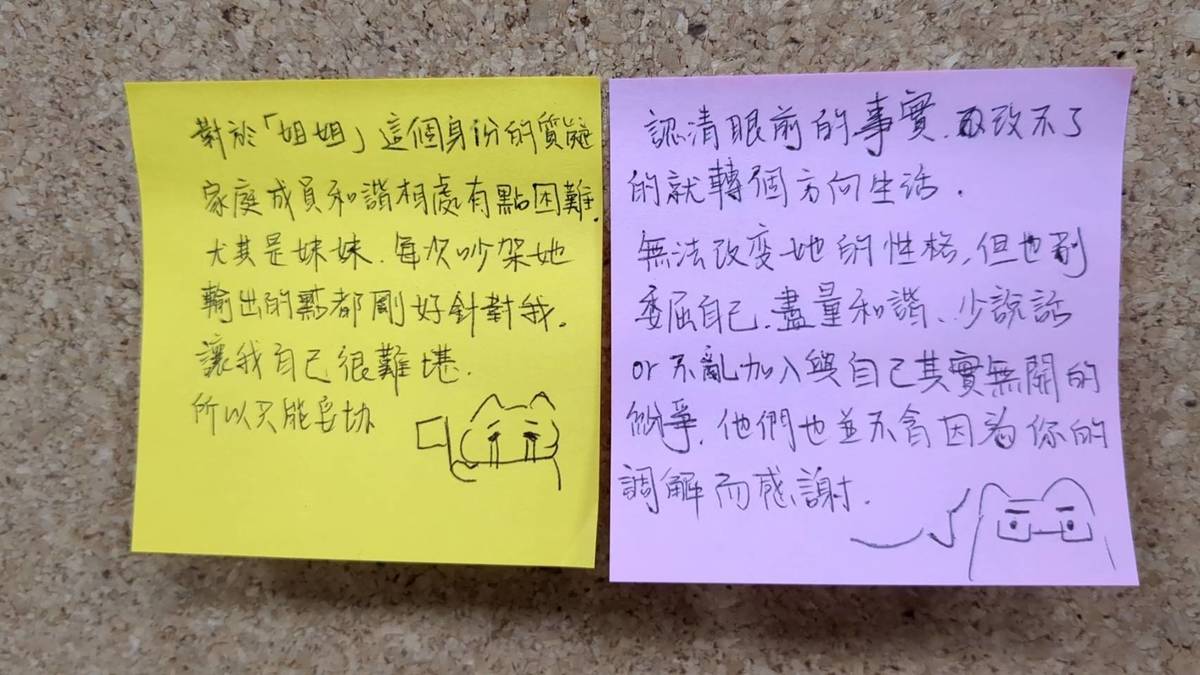 對於「姐姐」這個身份的質疑
家庭成員和諧相處有點困難.
尤其是妹妹.每次吵架她
輸出的點都剛好針對我.
讓我自己很難堪.
所以只能妥協
認清眼前的事實.改不了
的就轉個方向生活.
無法改変她的性格,但也別
委屈自己.盡量和諧、少說話
or 不亂加入與自己其實無關的
紛爭.他們也並不會因為你的
調解而感謝.